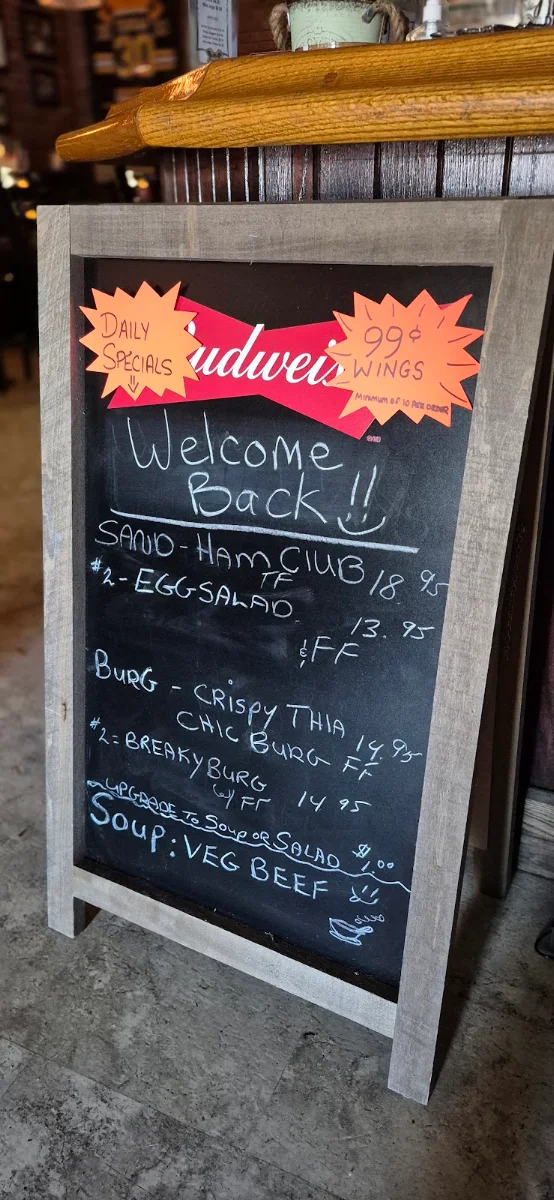 DAILY
SPECIALS
Budweis
99¢
WINGS
MINIMUM OF 10 PER ORDER
Welcome
Back!!
SAND - HAM CLUB 18.95
FF
#2 - EGG SALAD 13.95
& FF
BURG - CRISPY THIA
CHIC BURG 14.95
FF
#2 = BREAKY BURG
W/ FF 14 95
UPGRADE TO SOUP OR SALAD $1.00
SOUP: VEG BEEF